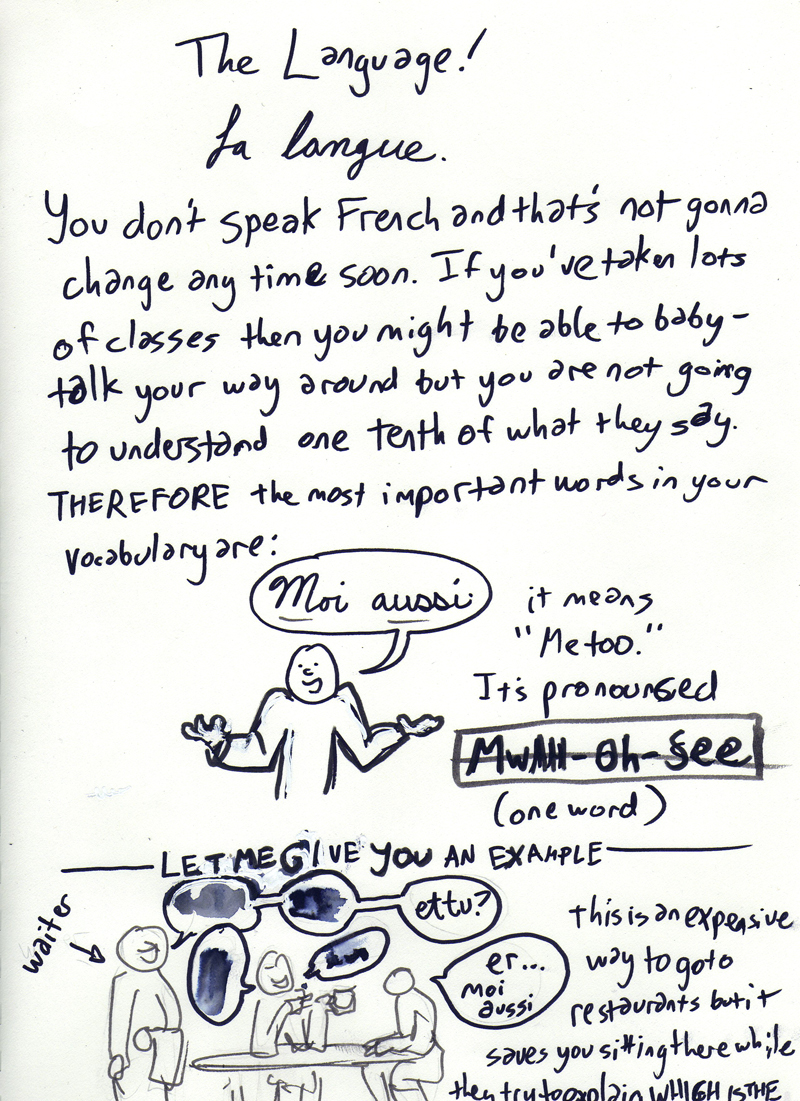 The Language!
La langue.
You don't speak French and that's not gonna
change any time soon. If you've taken lots
of classes then you might be able to baby-
talk your way around but you are not going
to understand one tenth of what they say.
THEREFORE the most important words in your
vocabulary are:
Moi aussi.
it means
"Me too."
It's pronounsed
MwAH-Oh-See
(one word)
LET ME GIVE YOU AN EXAMPLE
waiter
et tu?
er...
moi
aussi
this is an expensive
way to go to
restaurants but it
saves you sitting there while
they try to explain WHICH IS THE